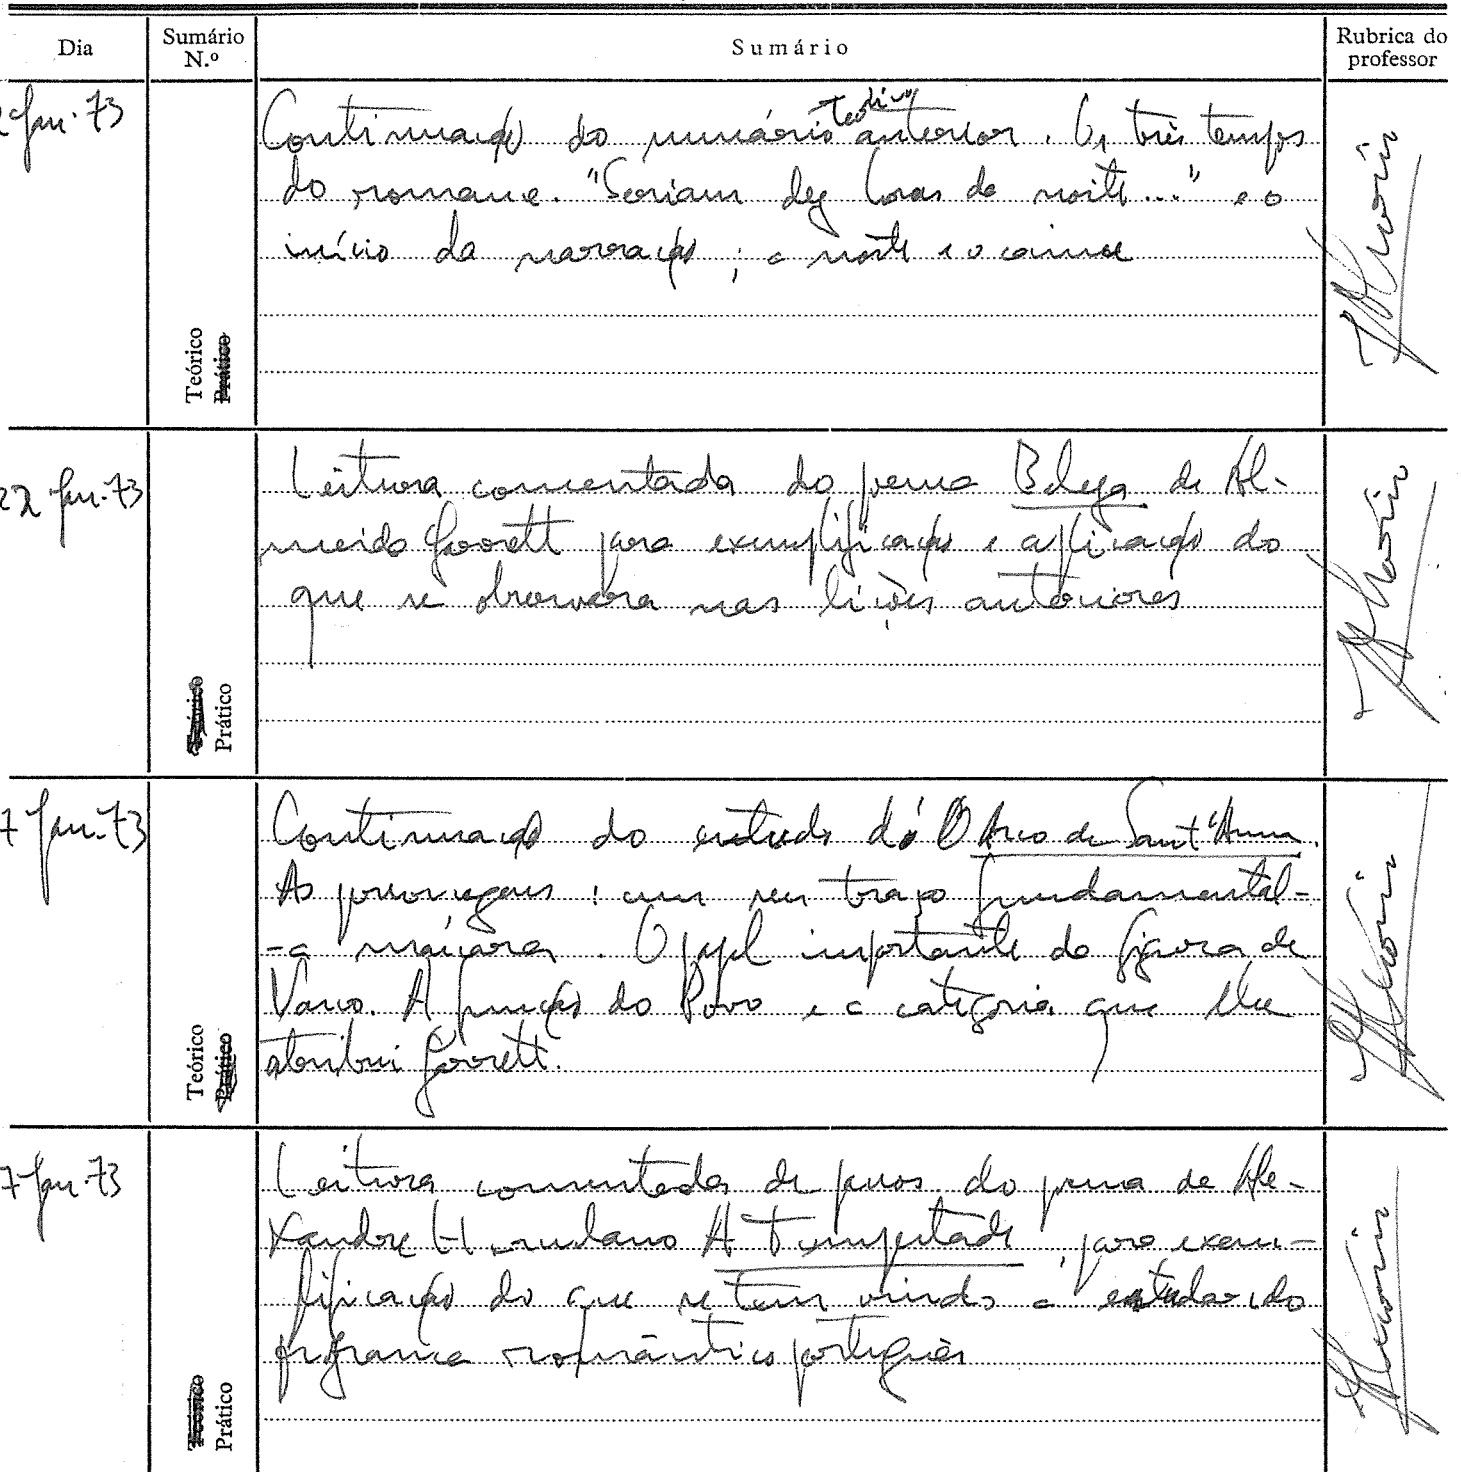 Dia
Sumário N.º
Sumário
Rubrica do professor
2 Jan. 73
Teórico
Prático
Continuação do sumário teórico anterior. Os três tempos
do romance. "Seriam dez horas da noite..." e o
início da narração; a noite e o
22 Jan. 73
Teórico
Prático
Leitura comentada do poema Beleza de Al-
meida Garrett para exemplificação e aplicação do
que se observara nas lições anteriores
7 Jan. 73
Teórico
Prático
Continuação do estudo d'O Arco de Sant'Anna.
As personagens: um seu traço fundamental-
-a máscara. O papel importante da figura de
Vasco. A função do Povo e a categoria que lhe
atribui Garrett.
7 Jan. 73
Teórico
Prático
Leitura comentada de passos do poema de Ale-
xandre Herculano A Tempestade, para exem-
plificação do que se tem vindo a estudar do
programa romântico português